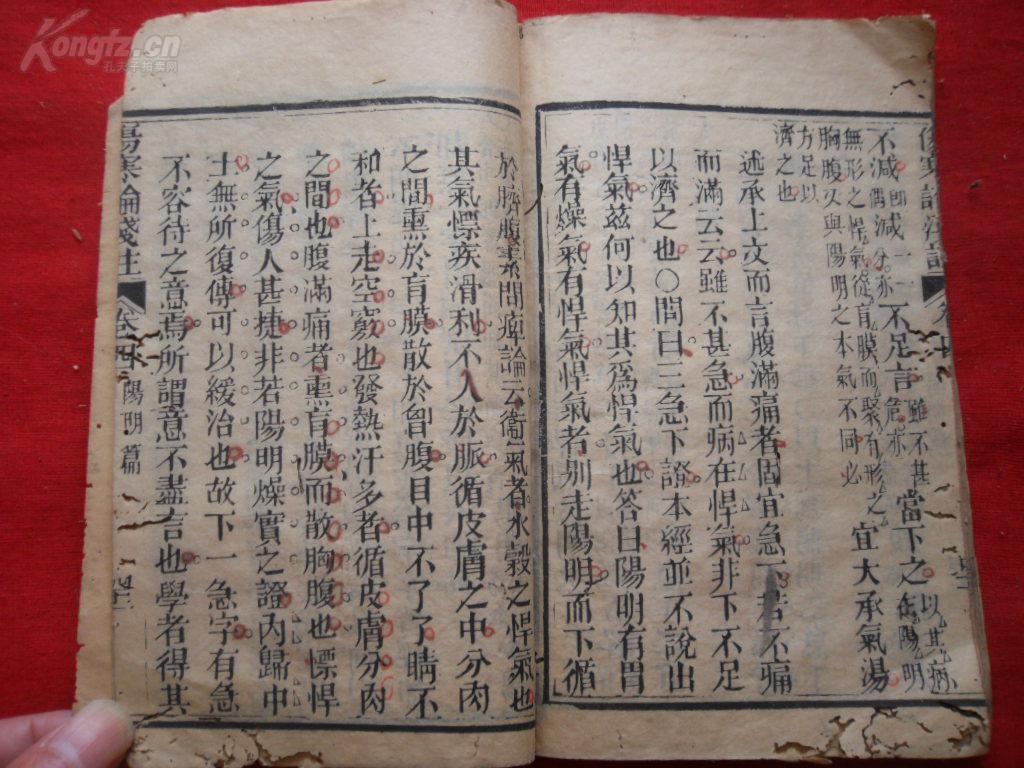 Kongfz.cn
孔夫子拍卖网
不減即減一二不足言雖不甚危亦當下之以其病在陽明
無形之悍氣從肓膜而聚有形之
胸腹又與陽明之本氣不同必
宜大承氣湯
方足以
濟之也
述承上文而言腹滿痛者固宜急下若不痛
而滿云云雖不甚急而病在悍氣非下不足
以濟之也○問曰三急下證本經並不說出
悍氣茲何以知其爲悍氣也答曰陽明有胃
氣有燥氣有悍氣悍氣者別走陽明而下循
於臍腹素問痺論云衛氣者水穀之悍氣也
其氣慓疾滑利不入於脈循皮膚之中分肉
之間熏於肓膜散於胷腹目中不了了睛不
和者上走空竅也發熱汗多者循皮膚分肉
之間也腹滿痛者熏肓膜而散胸腹也慓悍
之氣傷人甚捷非若陽明燥實之證內歸中
土無所復傳可以緩治也故下一急字有急
不容待之意焉所謂意不盡言也學者得其
傷寒論淺註
卷四
陽明篇